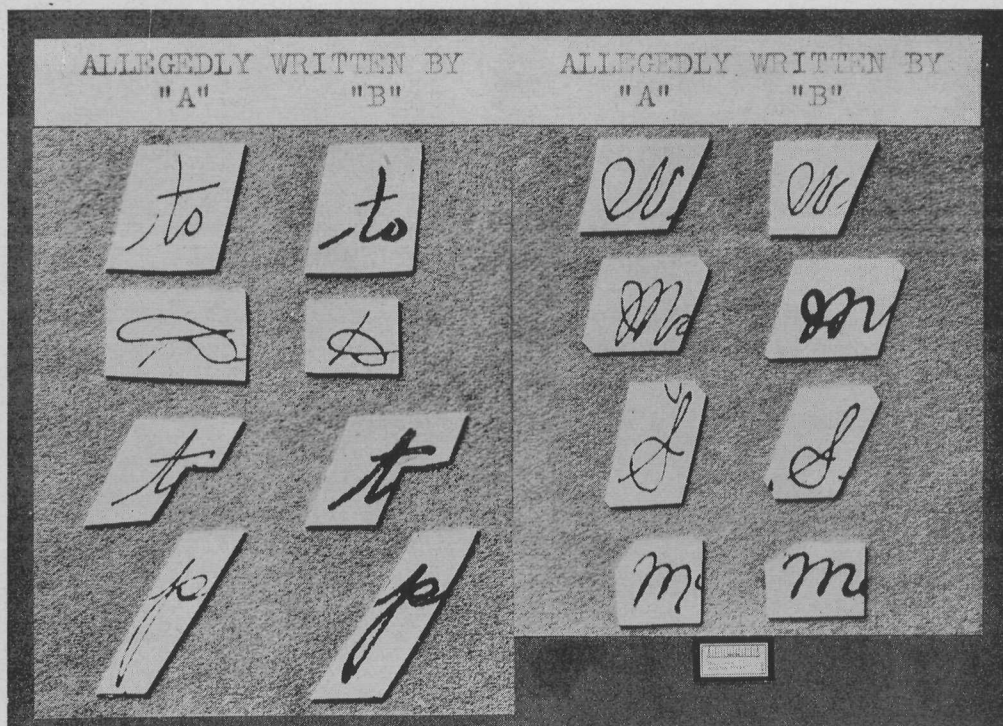 ALLEGEDLY WRITTEN BY
"A" "B"
ALLEGEDLY WRITTEN BY
"A" "B"
to to
t t
p p
W W
M M
S S
M M